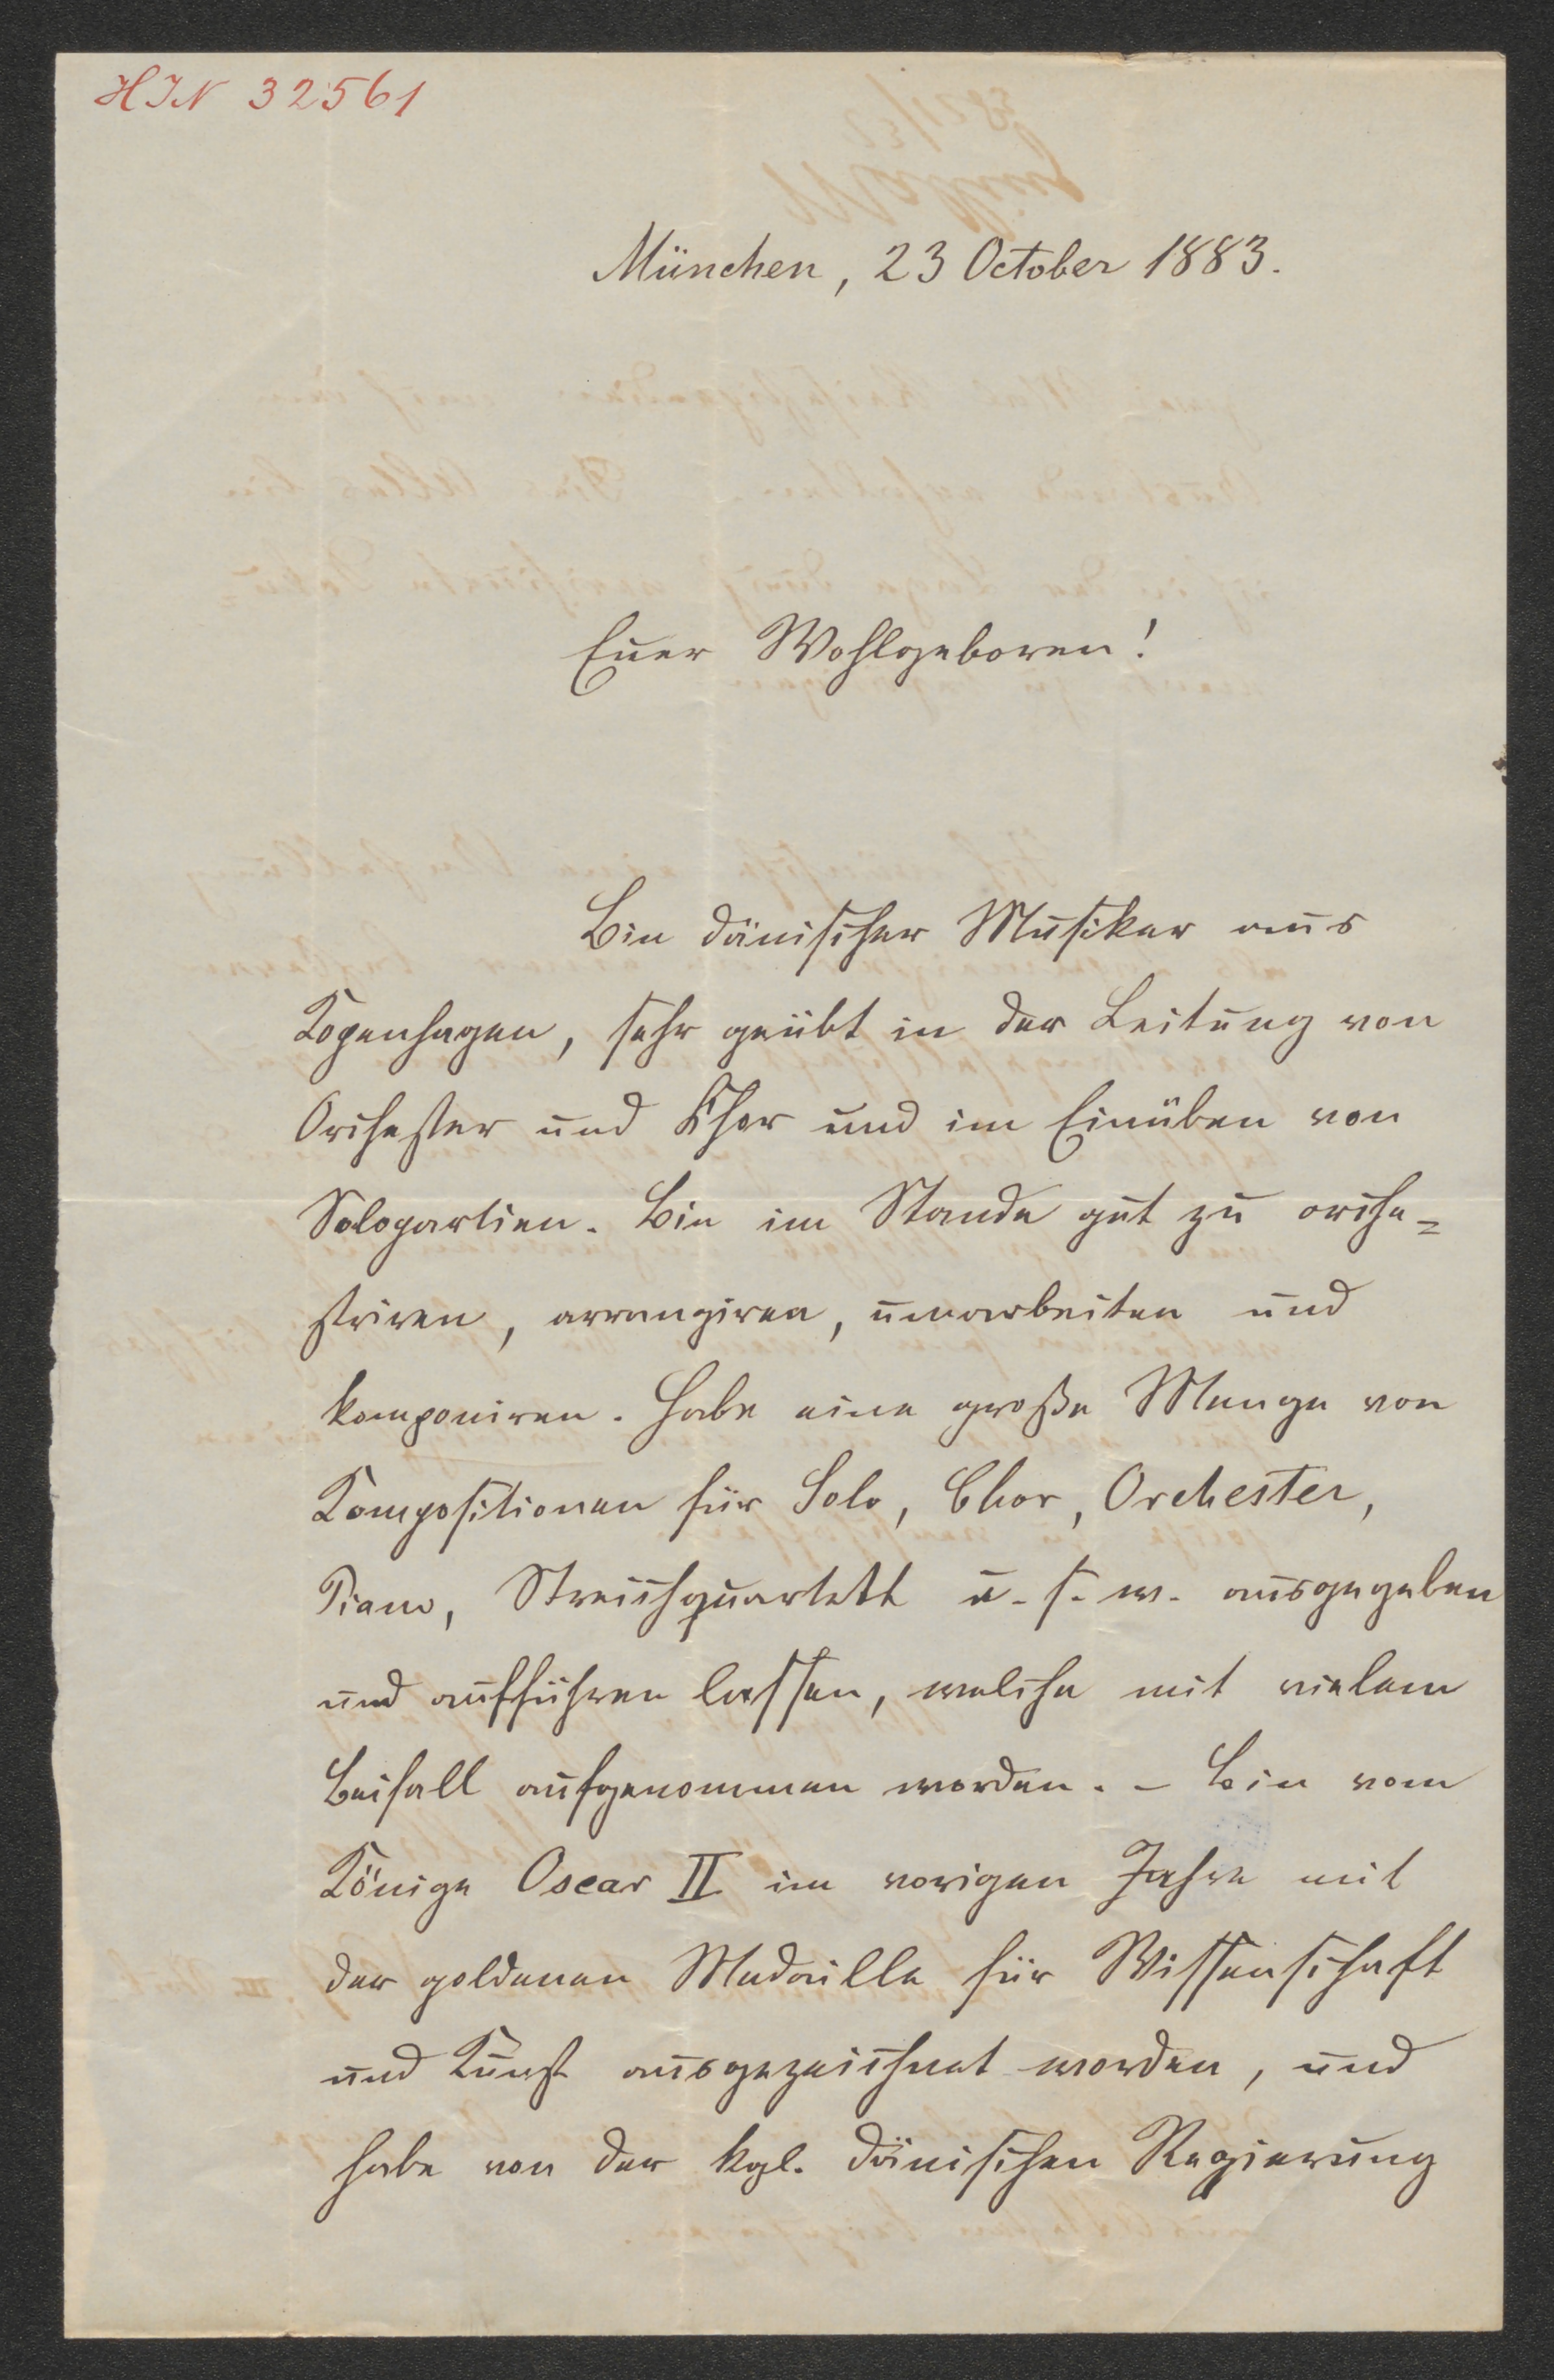 HIN 32561
München, 23 October 1883.
Euer Wohlgeboren!
Bin dänischer Musiker aus
Kopenhagen, sehr geübt in der Leitung von
Orchester und Chor und im Einüben von
Solopartien. Bin im Stande gut zu orche=
striren, arrangiren, umarbeiten und
komponiren. Habe eine große Menge von
Kompositionen für Solo, Chor, Orchester,
Piano, Streichquartett u. s. w. ausgegeben
und aufführen lassen, welche mit vielem
Beifall aufgenommen worden. – Bin vom
Könige Oscar II im vorigen Jahre mit
der goldenen Medaille für Wissenschaft
und Kunst ausgezeichnet worden, und
habe von der kgl. dänischen Regierung